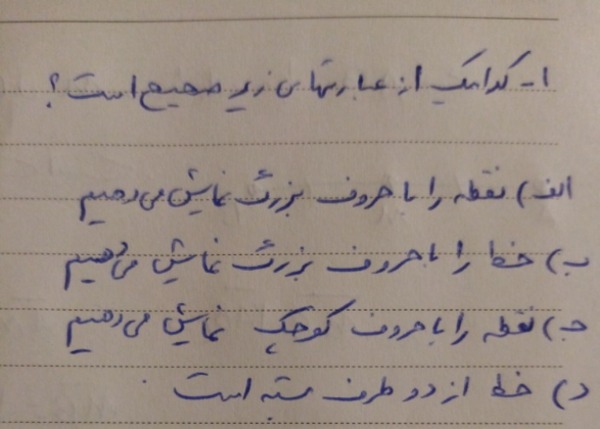 ۱- کدامیک از عبارتهای زیر صحیح است؟
الف) نقطه را با حروف بزرگ نمایش می‌دهیم
ب) خط را با حروف بزرگ نمایش می‌دهیم
ج) نقطه را با حروف کوچک نمایش می‌دهیم
د) خط از دو طرف بسته است.